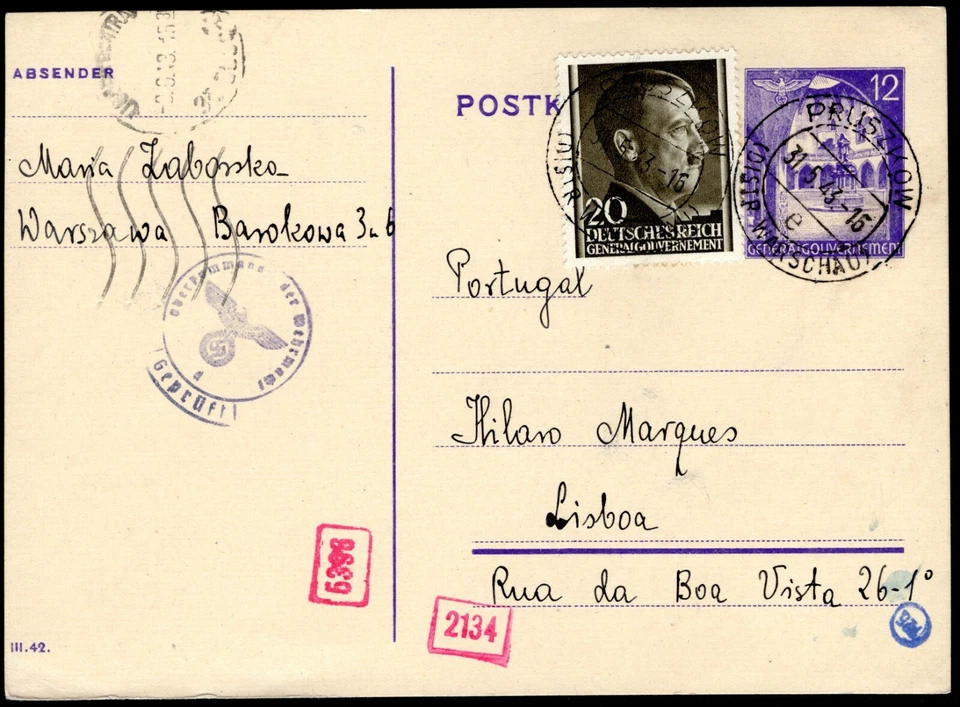 ABSENDER
Maria Zaborska
Warszawa Barokowa 3 u 6
Oberkommando der Wehrmacht
d
Geprüft
5398
III.42.
POSTK
20
DEUTSCHES REICH
GENERALGOUVERNEMENT
12
GENERALGOUVERNEMENT
PRUSZKOW
31.5.43-16
e
(DISTR. WARSCHAU)
Portugal
Hilaro Marques
Lisboa
Rua da Boa Vista 26-1º
2134